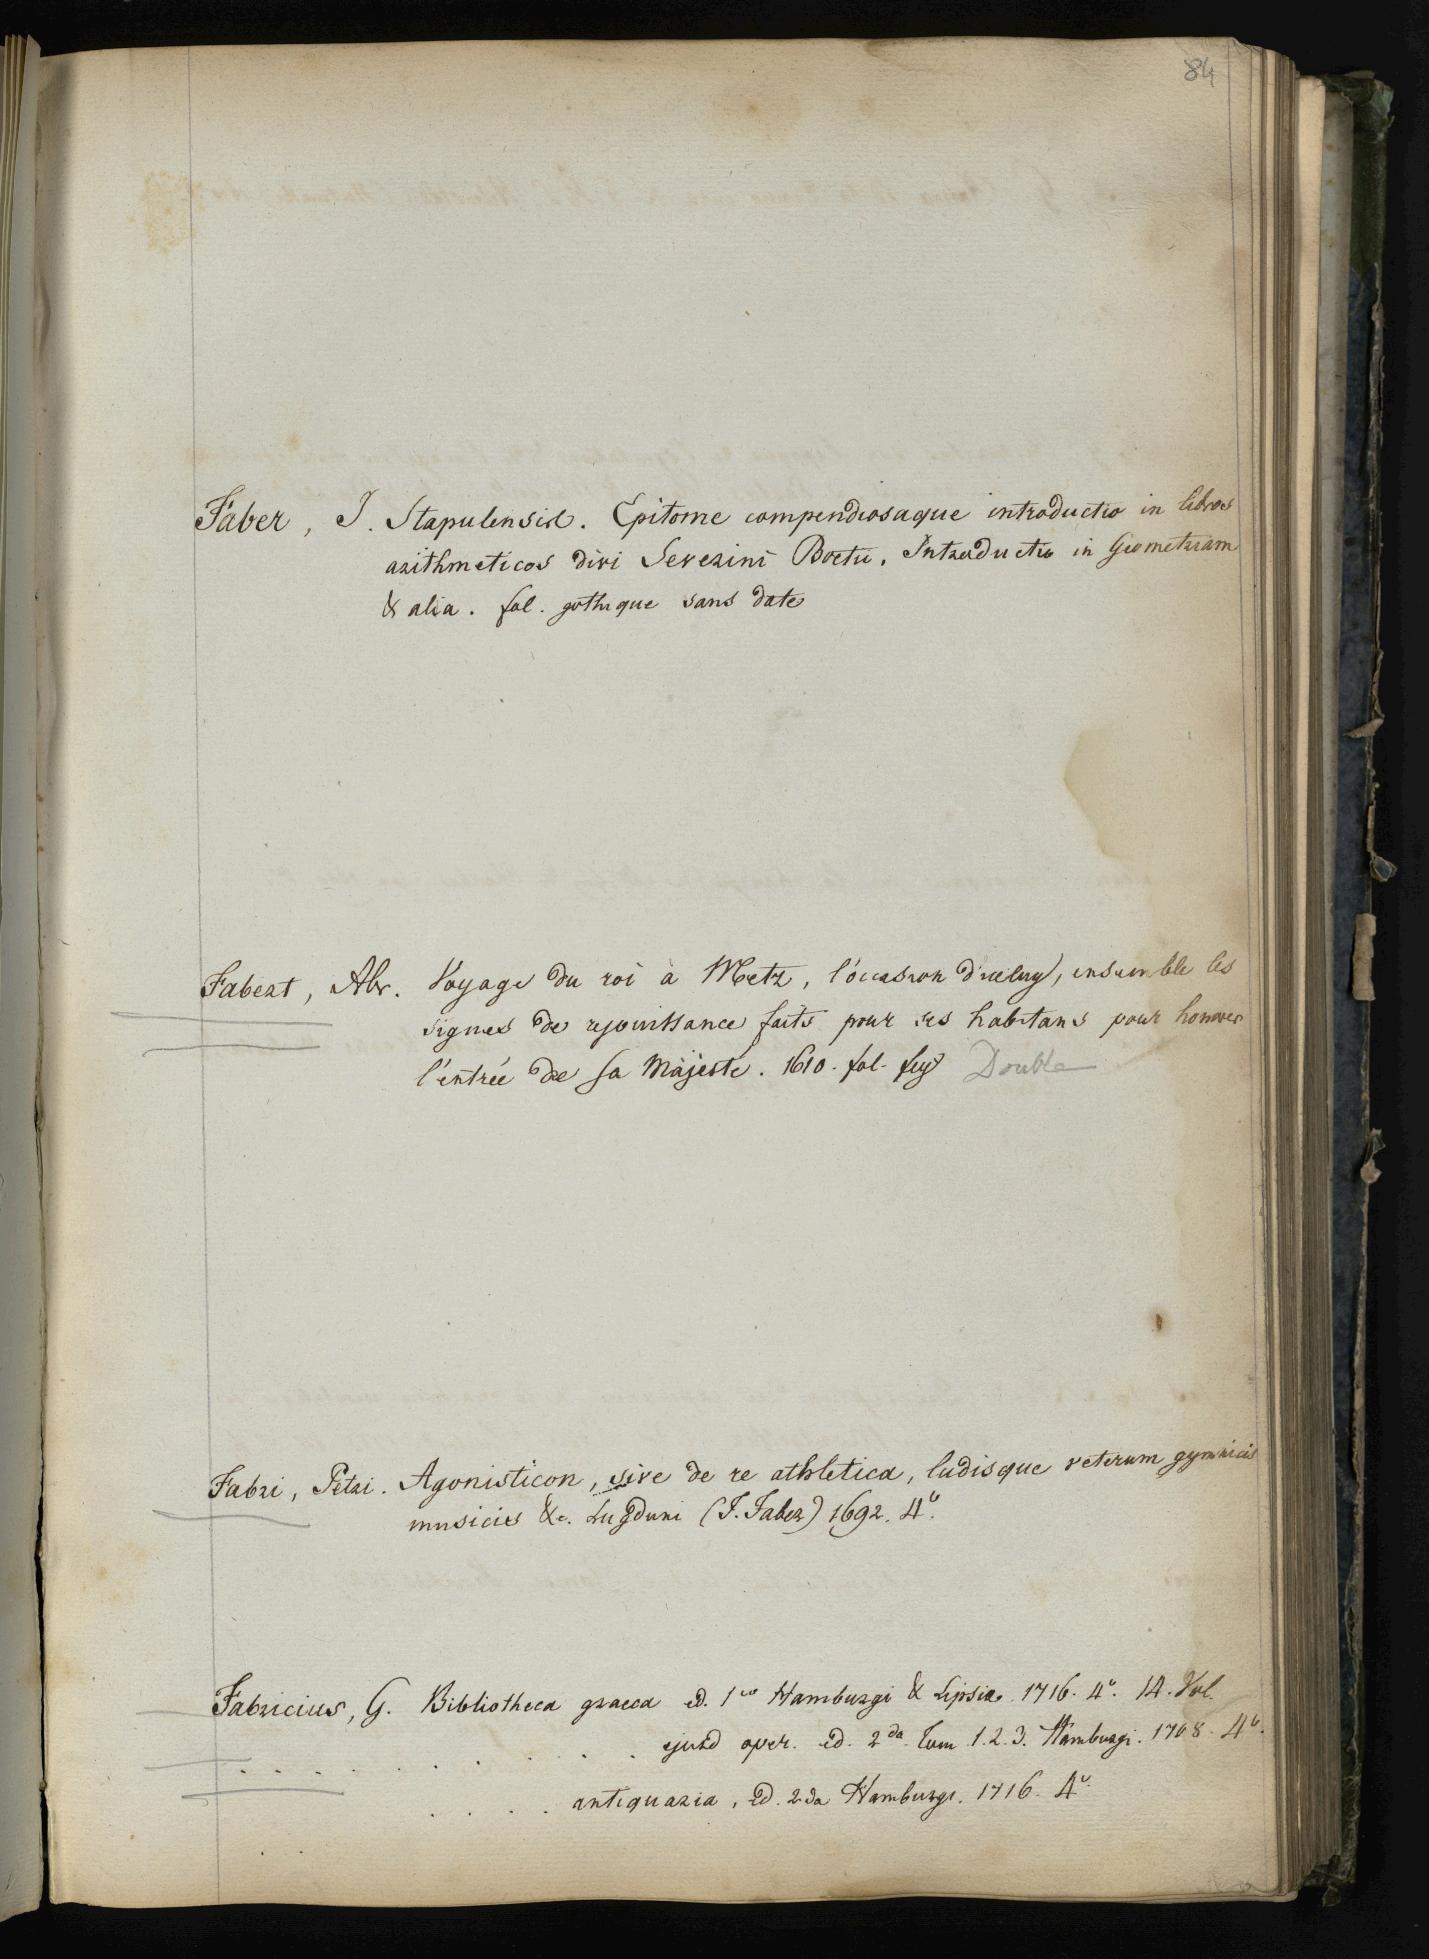 84
Faber, J. Stapulensis. Epitome compendiosaque introductio in libros
arithmeticos divi Severini Boetii. Introductio in Geometriam
& alia. fol. gothique sans date
Fabert, Abr. Voyage du roi à Metz, l'occasion d'iceluy, ensemble les
signes de rejouissance faits pour ses habitans pour honorer
l'entrée de sa Majesté. 1610. fol. fig Double
Fabri, Petri. Agonisticon, sive de re athletica, ludisque veterum gymnicis
musicis &c. Lugduni (F. Faber) 1692. 4º.
Fabricius, G. Bibliotheca graeca ed. 1 Hamburgi & Lipsiae. 1716. 4º. 14. Vol.
. . . . . . . . . . . ejusd oper. ed. 2da. Tom. 1.2.3. Hamburgi. 1708. 4º.
. . . . antiquaria, Ed. 2da Hamburgi. 1716. 4º.